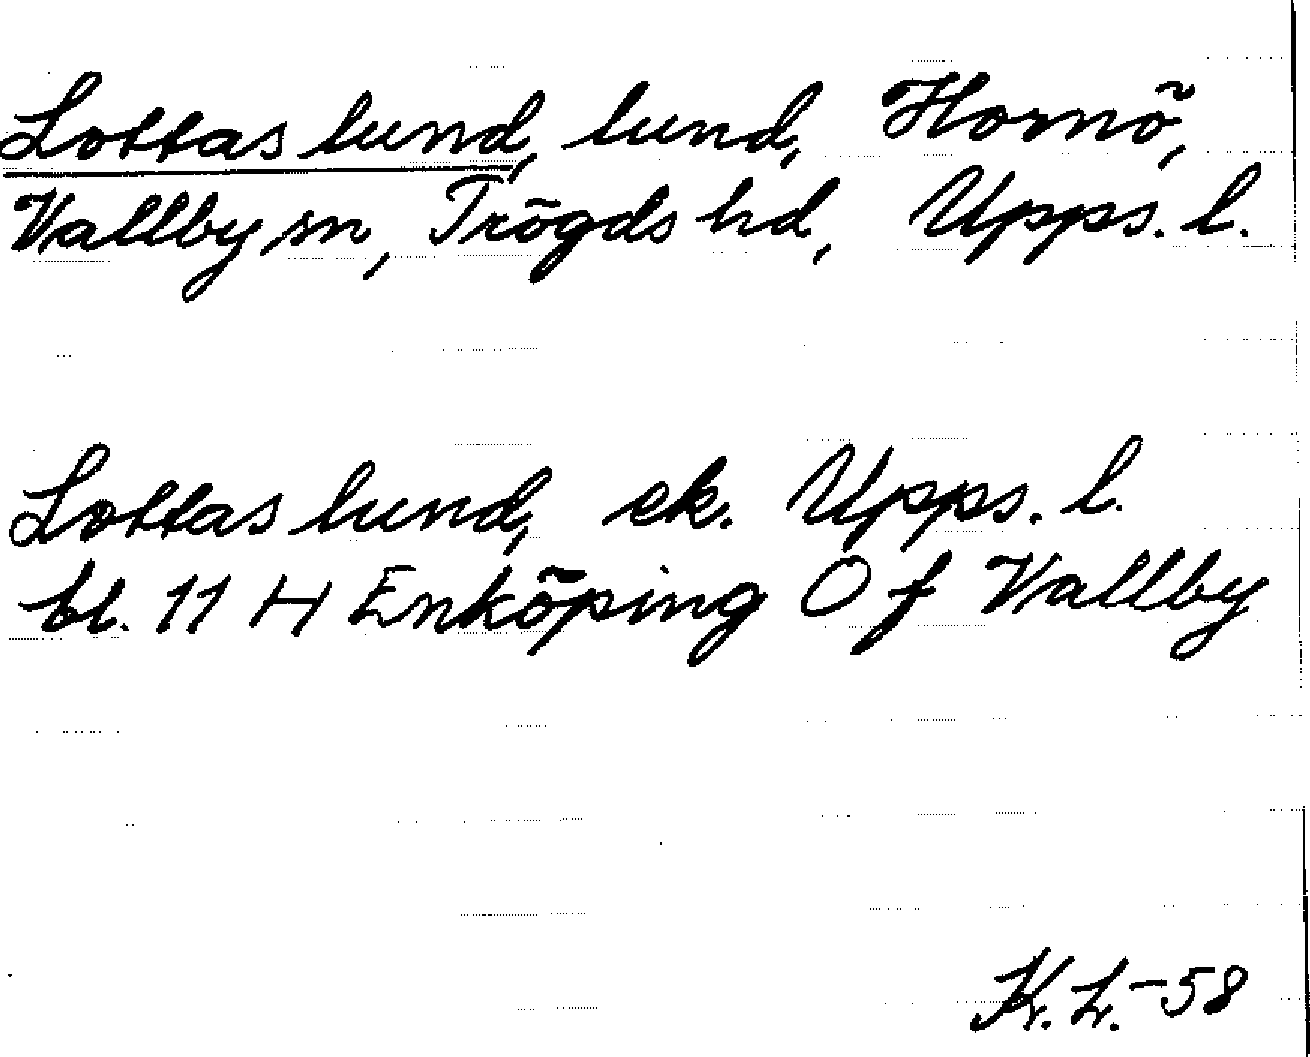 Lottas lund, lund, Hornö,
Vallby sn, Trögds hd, Upps. l.
Lottas lund, ek. Upps. l.
bl. 11 H Enköping O f Vallby
K. L. -58